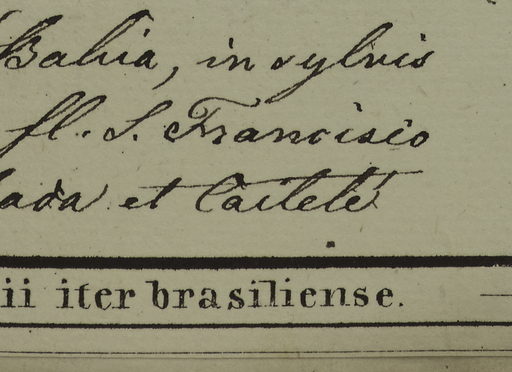 Bahia, in sylvis
fl. S. Francisio
et Caiteté
ii iter brasiliense.